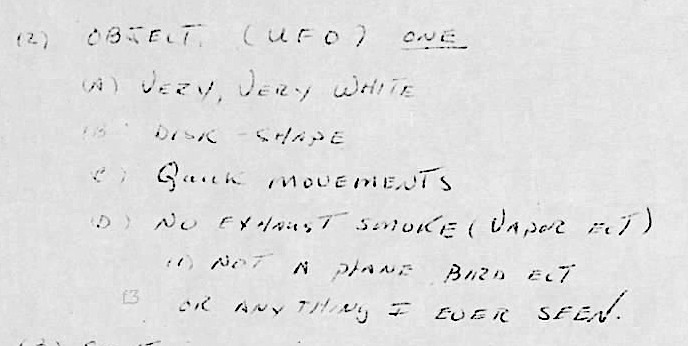 (2) OBJECT. (UFO) ONE
(A) VERY, VERY WHITE
(B DISK - SHAPE
C) Quick MOVEMENTS
(D) NO EXHAUST SMOKE (VAPOR ECT)
(1) NOT A PLANE BIRD ECT
OR ANY THING I EVER SEEN.